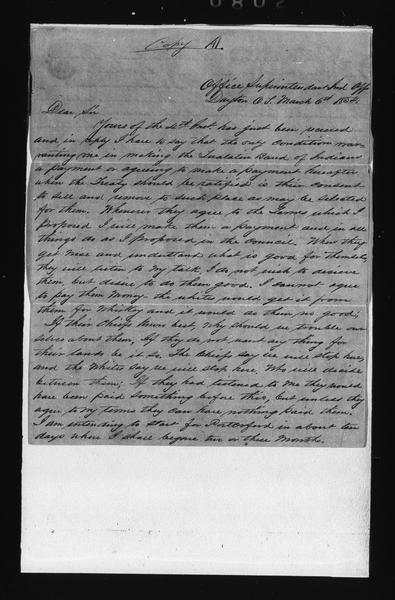 Copy A.
Office Superintendent Ind Aff
Dayton O.T. March 6th 1854.
Dear Sir
Yours of the 4th Inst has just been received
and in reply I have to say that the only condition war-
ranting me in making the Tualatin Band of Indians
a payment or agreeing to make a payment hereafter
when the Treaty should be ratified is their consent
to sell and remove to such place as may be selected
for them. Whenever they agree to the terms which I
proposed I will make them a payment and in all
things do as I proposed in the council. When they
get near and understand what is good for themselves
they will listen to my talk, I do not wish to deceive
them, but desire to do them good. I cannot agree
to pay them Money the white would get it from
them for Whiskey and it would do them no good;
If their Chiefs know best, Why should we trouble our
selves about them, If they do not want any thing for
their lands be it so. The Chiefs say we will stop here,
and the Whites say we will stop here. Who will decide
between them; If they had listened to Me they would
have been paid something before this, but unless they
agree to my terms they can have nothing paid them.
I am intending to start for Port Orford in about ten
days where I shall be gone two or three Months.